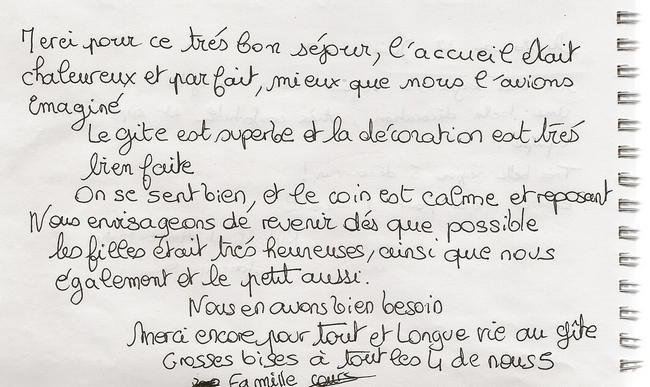 Merci pour ce trés bon séjour, l'accueil était
chaleureux et parfait, mieux que nous l'avions
imaginé
Le gite est superbe et la décoration est trés
bien faite
On se sent bien, et le coin est calme et reposant
Nous envisageons de revenir dés que possible
les filles était trés heureuses, ainsi que nous
également et le petit aussi.
Nous en avons bien besoin
Merci encore pour tout et Longue vie au gîte
Grosses bises à tout les 4 de nous 5
Famille